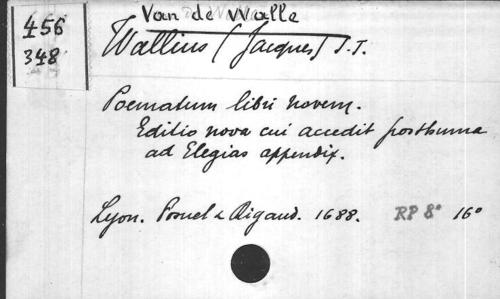 456
348
Van de Walle
Wallius (Jacques) S.J.
Poematum libri novem.
Editio nova cui accedit posthuma
ad Elegias appendix.
Lyon. Posuel & Rigaud. 1688. RP 8° 16°